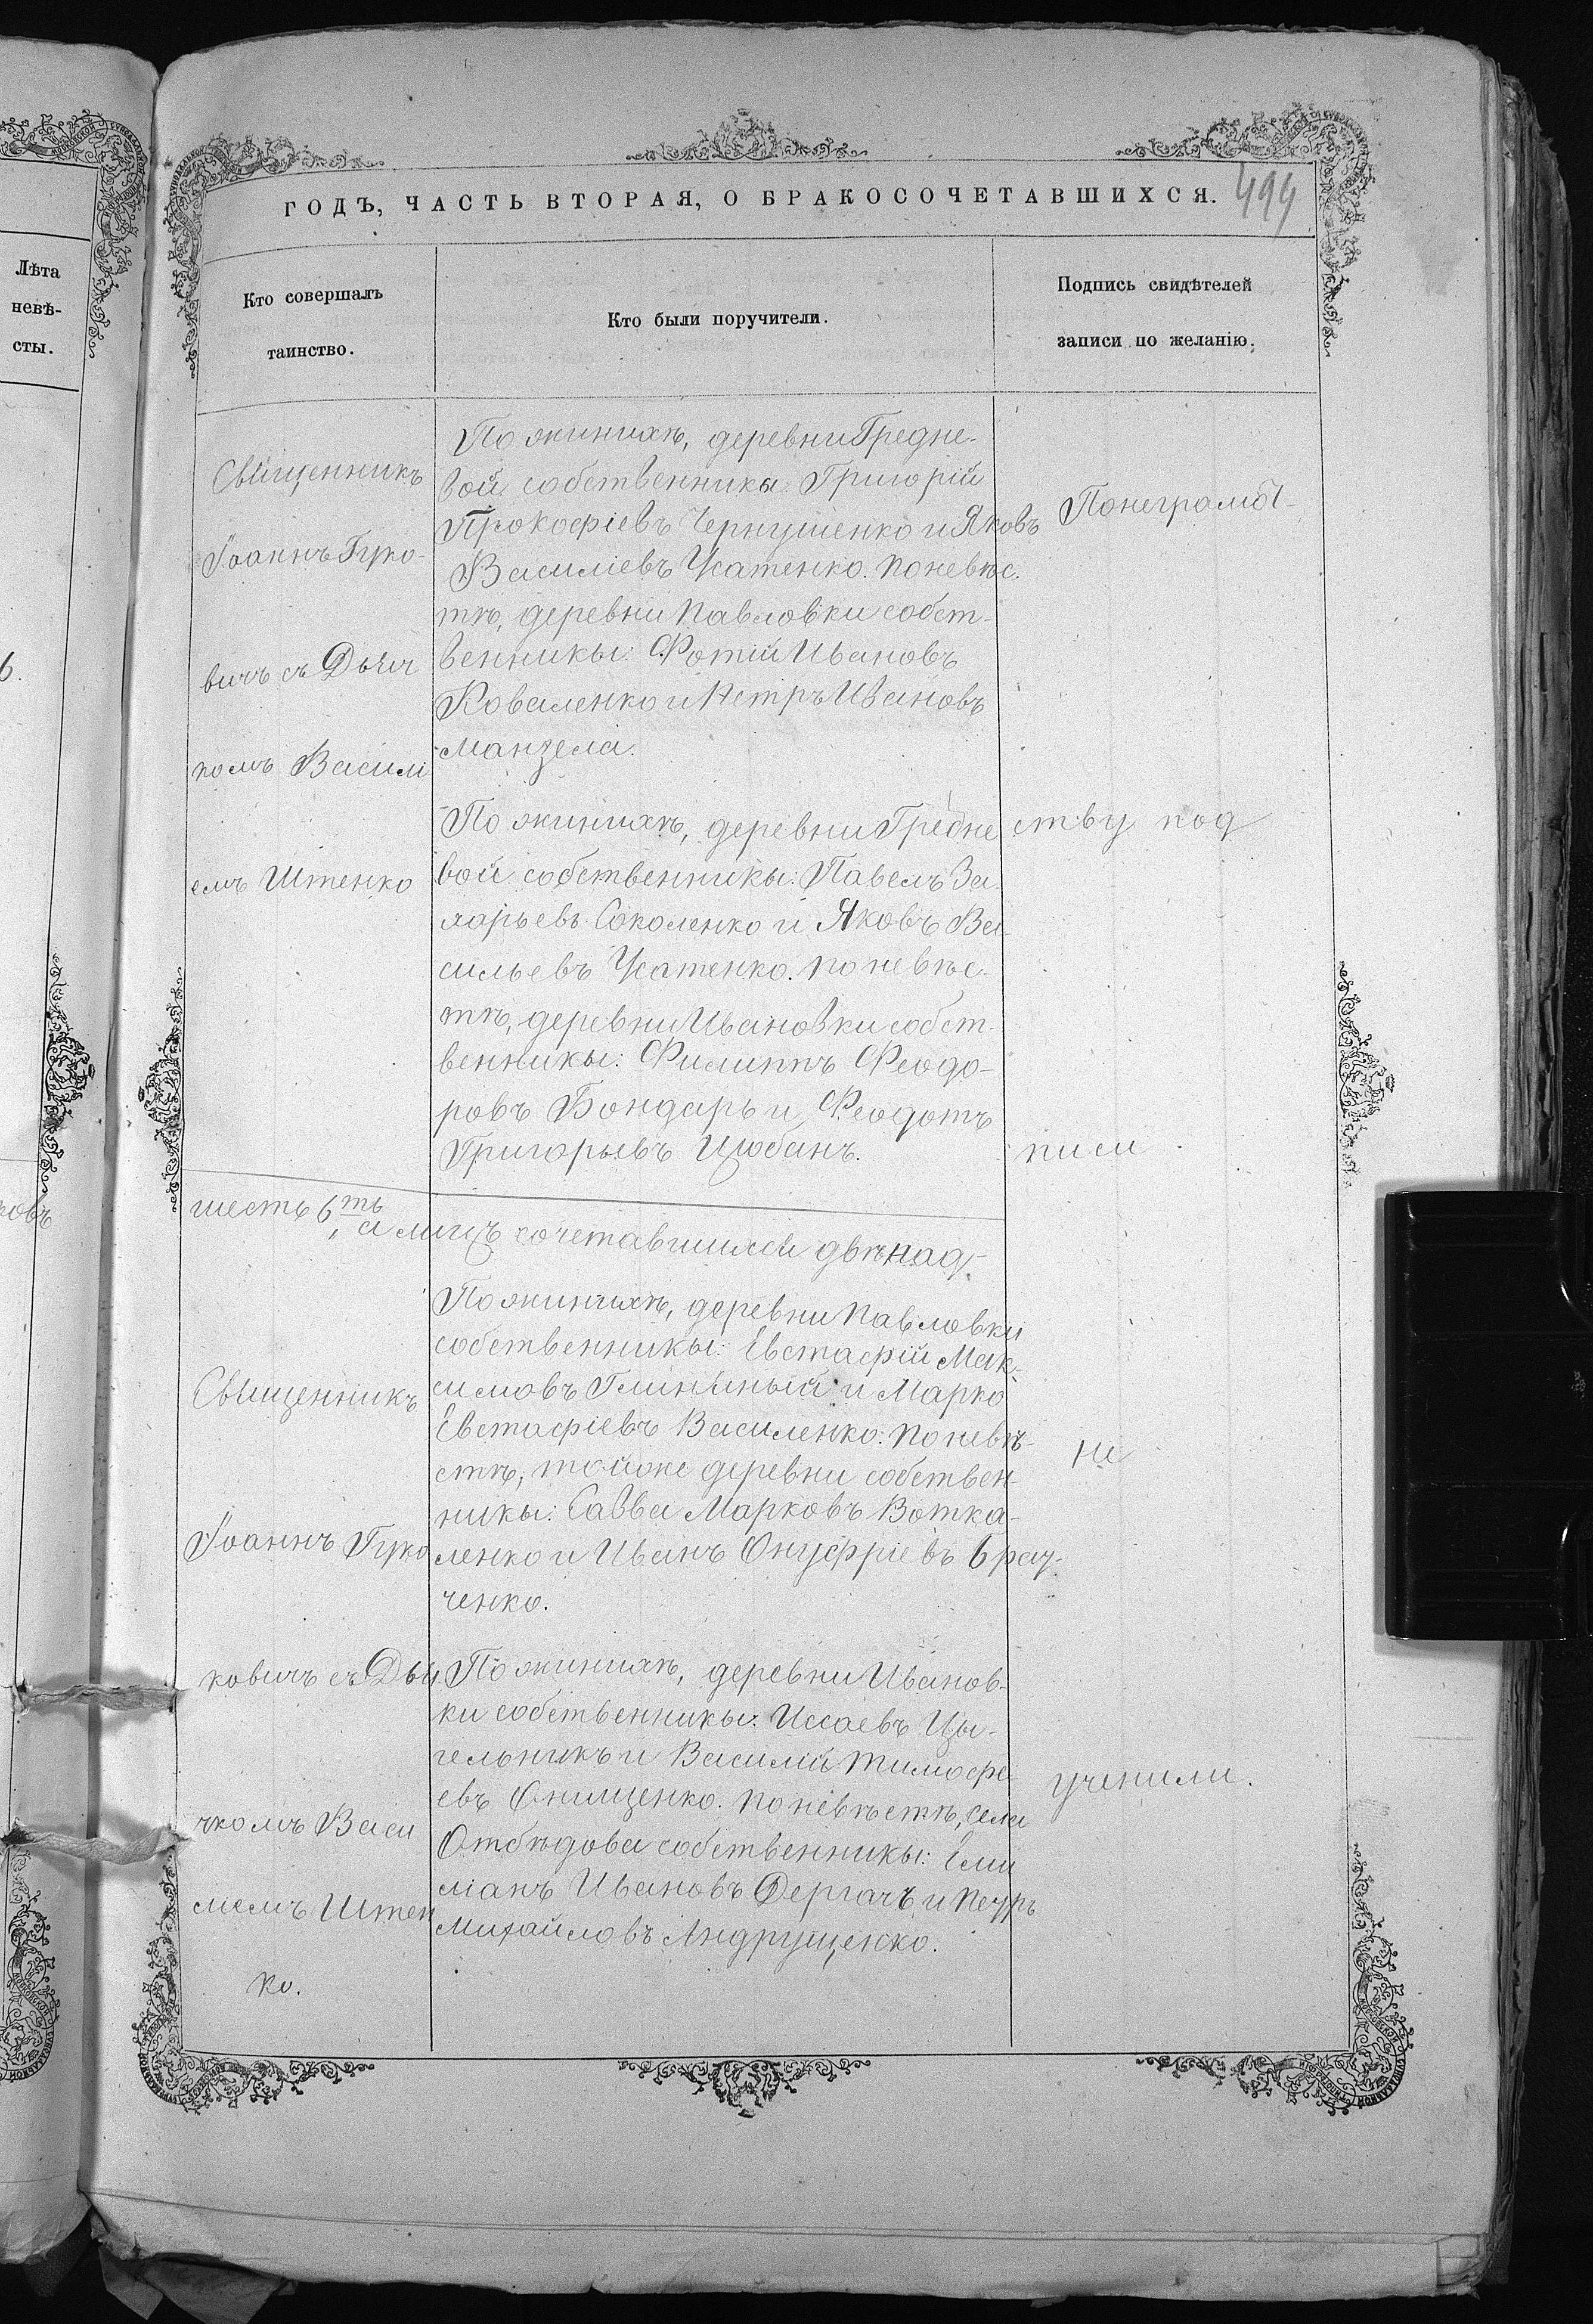 Лѣта
невѣ-
сты.
ГОДЪ, ЧАСТЬ ВТОРАЯ, О БРАКОСОЧЕТАВШИХСЯ.
494
Кто совершалъ
таинство.
Кто были поручители.
Подпись свидѣтелей
записи по желанію.
Священникъ
Іоаннъ Гуко-
вичъ съ Дьяч
комъ Васили
емъ Штенко
По женихѣ, деревни Гредне-
вой собственники: Григорій
Прокофіевъ Чернушенко и Яковъ
Василіевъ Усатенко. По невѣс-
тѣ, деревни Павловки собст-
венники: Фотій Ивановъ
Коваленко и Петръ Ивановъ
Манзела.
По женихѣ, деревни Гредне
вой собственники: Павелъ За-
харьевъ Соколенко и Яковъ Ва-
сильевъ Усатенко. По невѣс-
тѣ, деревни Ивановки собст-
венники: Филиппъ Феодо-
ровъ Бондарь и Феодотъ
Григорьевъ Цюбанъ.
Понеграмот-
ству под
писи
шесть 6ть, а лицъ сочетавшихся двѣнад-
Священникъ
Іоаннъ Гуко
ковичъ съ Дья
чкомъ Васи
ліемъ Штен
ко.
По женихѣ, деревни Павловки
собственники: Евстафій Мак-
симовъ Глиняный и Марко
Евстафіевъ Василенко. По невѣ-
стѣ, тойже деревни собствен-
ники: Савва Марковъ Вотка-
ленко и Иванъ Онуфріевъ Брау-
ченко.
По женихѣ, деревни Иванов-
ки собственники: Исаевъ Цы-
гельникъ и Василій Тимофе-
евъ Онищенко. По невѣстѣ, села
Отбѣдова собственники: Еми
ліанъ Ивановъ Дергачъ и Петръ
Михайловъ Андрущенко.
не
учинили.